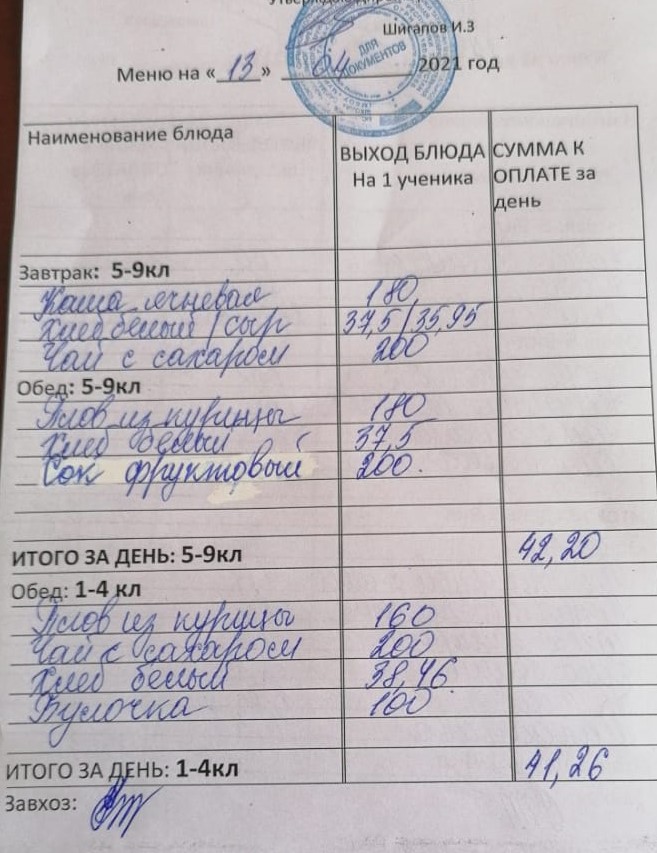 Шигапов И.З
ДЛЯ ДОКУМЕНТОВ
Меню на «13» 04 2021 год
Наименование блюда ВЫХОД БЛЮДА На 1 ученика СУММА К ОПЛАТЕ за день
Завтрак: 5-9кл
Каша ячневая 180
Хлеб белый / сыр 37,5/35,95
Чай с сахаром 200
Обед: 5-9кл
Плов из курицы 180
Хлеб белый 37,5
Сок фруктовый 200.
ИТОГО ЗА ДЕНЬ: 5-9кл 42,20
Обед: 1-4 кл
Плов из курицы 160
Чай с сахаром 200
Хлеб белый 38,46
Булочка 100
ИТОГО ЗА ДЕНЬ: 1-4кл 41,26
Завхоз: